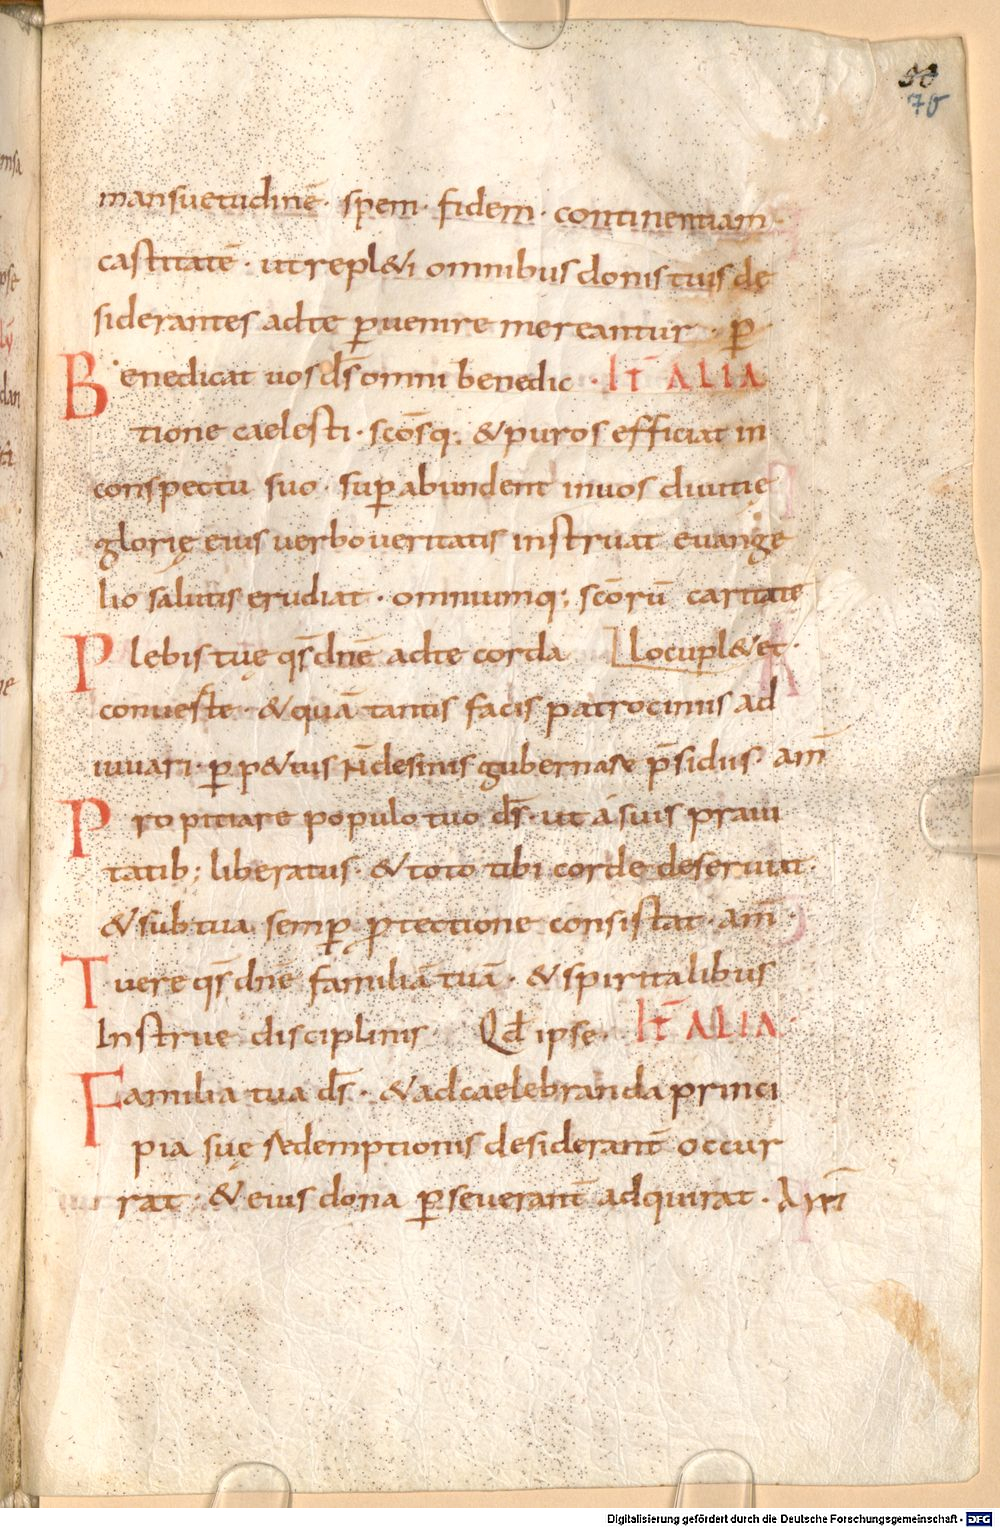 76
mansuetudinē· spem· fidem· continentiam·
castitatē· ut repl&i omnibus donis tuis de
siderantes adte ꝑuenire mereantur· ꝑ
Benedicat uos d̄s omni benedic· IT̄ ALIA
tione caelesti· sc̄osq; & puros efficiat in
conspectu suo· suꝑabundent inuos diuitię
glorię eius uerbo ueritatis instruat euange
lio salutis erudiat· omniumq; sc̄orū caritate
Plebis tuę qs̄ dn̄e adte corda locupl&et·
conuerte· & quā tantis facis patrociniis ad
iuuari· ꝑp&uis n̄ desinis gubernare p̄sidiis· am̄
Propitiare populo tuo d̄s· ut á suis praui
tatib; liberatus· & toto tibi corde deseruiat·
& sub tua semꝑ ꝓtectione consistat· am̄·
Tuere qs̄ dn̄e familiā tuā· & spiritalibus
Instrue disciplinis· Qd̄ ipse· IT̄ ALIA·
Familia tua d̄s· & ad caelebranda princi
pia suę redemptionis desideranť occur
rat· & eius dona ꝑseueranť adquirat·
Digitalisierung gefördert durch die Deutsche Forschungsgemeinschaft - DFG